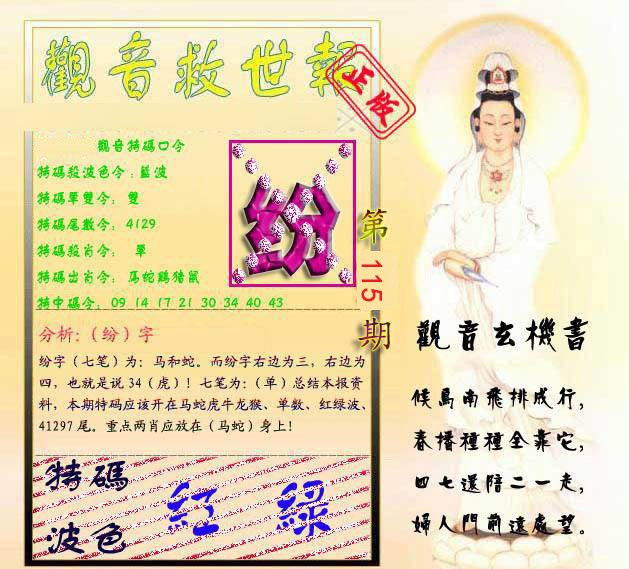 觀音救世報
正版
觀音特碼口令
特碼殺波色令：藍波
特碼單雙令：雙
特碼尾數令：4129
特碼殺肖令：單
特碼出肖令：馬蛇鷄猪鼠
特中碼令：09 14 17 21 30 34 40 43
纷
第115期
分析：（纷）字
纷字（七笔）为：马和蛇。而纷字右边为三，右边为
四，也就是说34（虎）！七笔为：（单）总结本报资
料，本期特码应该开在马蛇虎牛龙猴、单数、红绿波、
41297尾。重点两肖应放在（马蛇）身上！
特碼
波色
紅 綠
觀音玄機書
候鳥南飛排成行，
春播種種全靠它，
四七還陪二一走，
婦人門前遠處望。